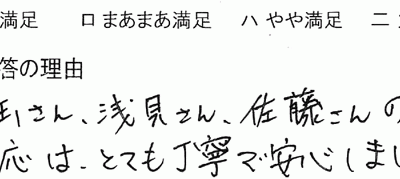 満足 ロ まあまあ満足 ハ やや満足 ニ
答の理由
さん、浅見さん、佐藤さんの
応は、とても丁寧で安心しまし